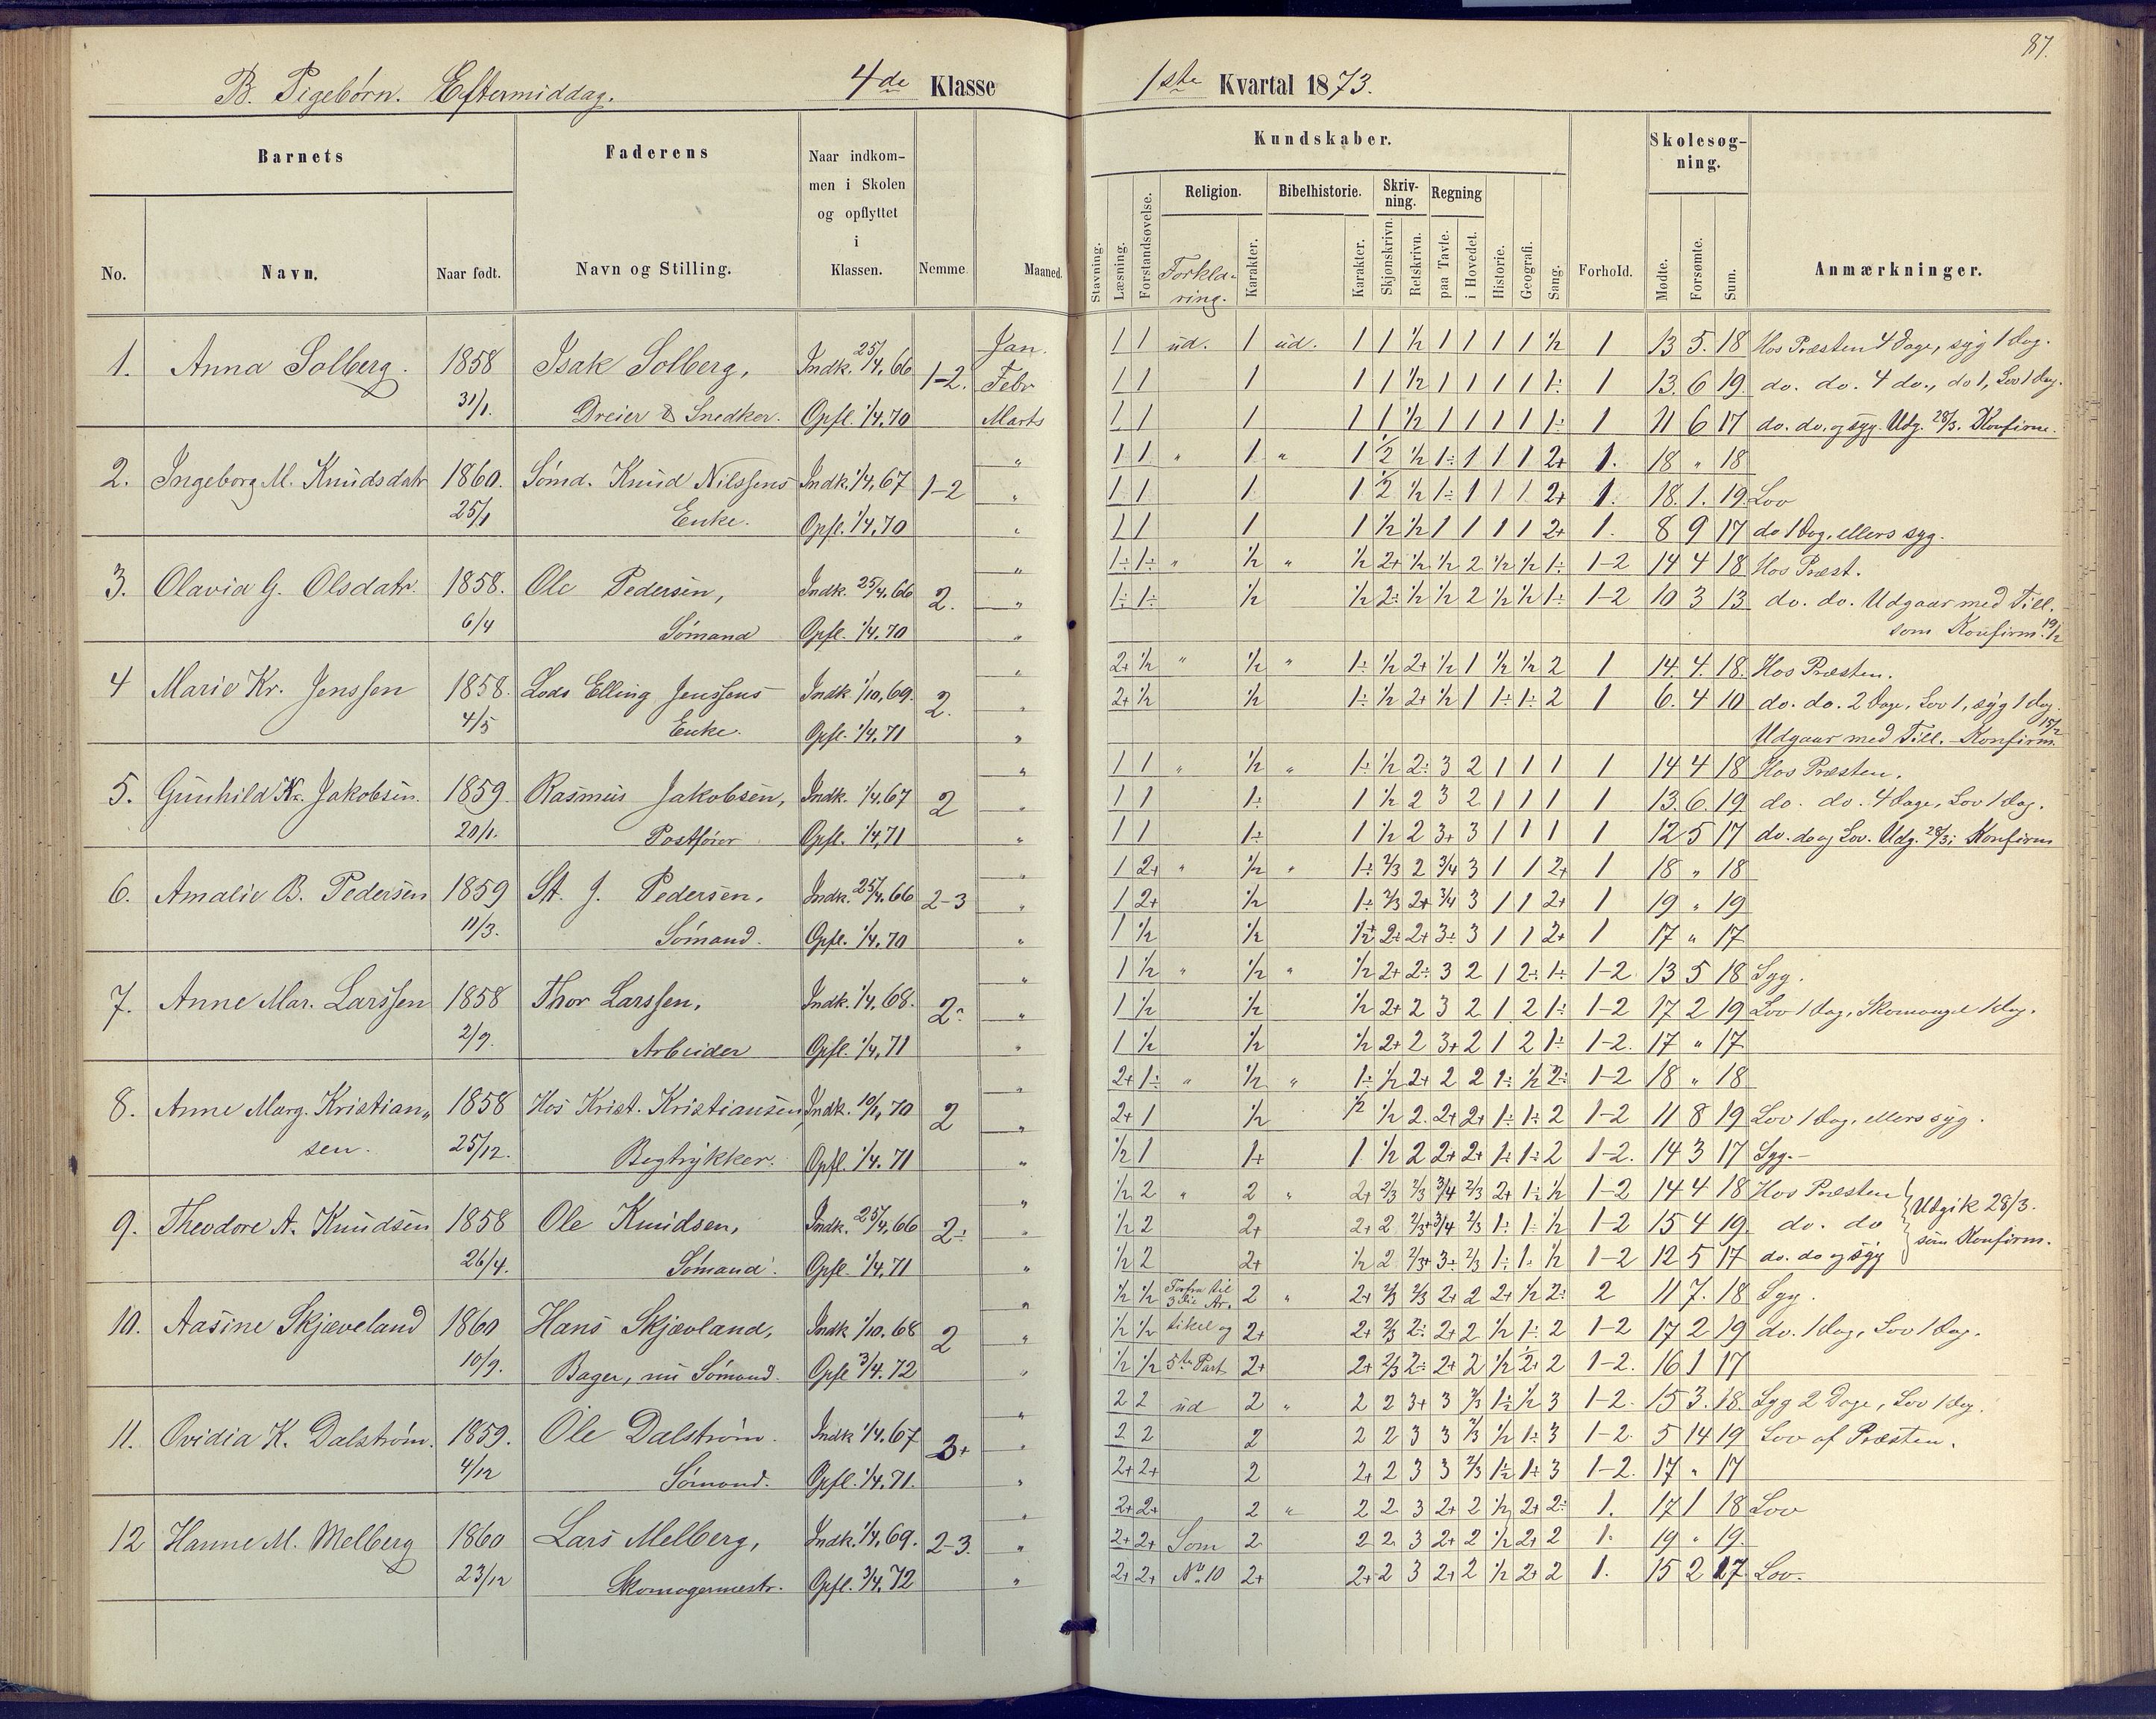 87.
B. Pigebørn. Eftermiddag. 4de Klasse 1ste Kvartal 1873.
Barnets Faderens Naar indkom-men i Skolen og opflyttet i Klassen. Nemme. Maaned.
No. Navn. Naar født. Navn og Stilling.
Kundskaber. Forhold. Skolesøg-ning. Anmærkninger.
Stavning. Læsning. Forstandsøvelse. Religion. Forkla-ring. Karakter. Bibelhistorie. Karakter. Skriv-ning. Skjønskrivn. Retskrivn. Regning paa Tavle. i Hovedet. Historie. Geografi. Sang. Mødte. Forsømte. Sum.
1. Anna Solberg. 1858 Isak Solberg, Indk. 25/4.66 1-2. Jan. 1 1 ud. 1 ud. 1 1 1/2 1 1 1 1 1/2 1 13 5. 18 Hos Præsten 4 Dage, syg 1 Dag.
Febr 1 1 1 1 1 1/2 1 1 1 1 1÷ 1 13. 6 19. do. do. 4 do., do 1, Lov 1 Dag.
31/1. Dreier & Snedker. Opfl. 1/4.70 Marts 1 1 1 1 1 1/2 1 1 1 1 1÷ 1 11 6 17 do. do. og syg. Udg. 28/3. Konfirm.
2. Ingeborg M. Knudsdatr 1860. Sømd. Knud Nilssens Indk. 1/4.67 1-2 " 1 1 " 1 " 1 1/2 1/2 1÷ 1 1 1 2+ 1. 18 " 18
" 1 1 1 1 1/2 1/2 1÷ 1 1 1 2+ 1. 18. 1. 19. Lov
25/1 Enke. Opfl. 1/4.70 " 1 1 1 1 1/2 1/2 1 1 1 1 2+ 1. 8 9 17 do 1 Dag, ellers syg.
3. Olavia G. Olsdatr. 1858. Ole Pedersen, Indk. 25/4.66 2. " 1÷ 1÷ " 1/2 " 1/2 2+ 1/2 1/2 2 1/2 1/2 1÷ 1-2 14 4 18 Hos Præst.
" 1÷ 1÷ 1/2 1/2 2÷ 1/2 1/2 2 1/2 1/2 1÷ 1-2 10 3 13 do. do. Udgaar med Till.
6/4 Sømand Opfl. 1/4.70 " som Konfirm. 19/2
4 Marie Kr. Jenssen 1858. Lods Elling Jenssens Indk 1/10,69. 2. " 2+ 1/2 " 1/2 " 1÷ 1/2 2+ 1/2 1 1/2 1/2 2 1 14. 4. 18. Hos Præsten.
" 2+ 1/2 1/2 1÷ 1/2 2+ 1/2 1 1÷ 1÷ 2 1 6. 4 10 do. do. 2 Dage, Lov 1, syg 1 Dag.
4/5 Enke. Opfl. 1/4.71 " Udgaar med Till. Konfirm. 15/2
5. Gunhild Kr. Jakobsen. 1859. Rasmus Jakobsen, Indk. 1/4.67 2 " 1 1 " 1/2 " 1÷ 1/2 2÷ 3 2 1 1 1 1 14 4 18 Hos Præsten.
" 1 1 1÷ 1 1/2 2 3 2 1 1 1 1 13. 6. 19. do. do. 4 Dage, Lov 1 Dag.
20/1. Postfører Opfl. 1/4,71 " 1 1 1÷ 1 1/2 2 3+ 3 1 1 1 1 12 5 17 do. do og Lov. Udg. 28/3 Konfirm
6. Amalie B. Pedersen 1859 St. J. Pedersen, Indk. 25/4.66 2-3 " 1 2+ " 1/2 " 1÷ 2/3 2 3/4 3 1 1 2+ 1 18 " 18
" 1 2+ 1/2 1÷ 2/3 2+ 3/4 3 1 1 2+ 1 19 " 19
11/3. Sømand. Opfl. 1/4.70 " 1 1/2 1/2 1/2 2÷ 2+ 3÷ 3 1 1 2+ 1 17 " 17
7. Anne Mar. Larssen 1858 Thor Larssen, Indk. 1/4.68. 2÷ " 1 1/2 " 1/2 " 1/2 2+ 2÷ 3 2 1 2÷ 1÷ 1-2 13 5 18 Syg.
" 1 1/2 1/2 1/2 2+ 2 3 2 1 2 1÷ 1-2 17 2 19 Lov 1 Dag, Skomangel 1 Dag.
2/9. Arbeider Opfl. 1/4,71 " 1 1/2 1/2 1/2 2+ 2 3+ 2 1 2 1÷ 1-2. 17 " 17
8. Anne Marg. Kristian" 1858 Hos Krist. Kristiansen, Indk. 10/1,70 2 " 2+ 1÷ " 1/2 " 1÷ 1/2 2+ 2 2 1÷ 1/2 2÷ 1-2 18 " 18
" 2+ 1 1/2 1/2 1/2 2. 2+ 2+ 1÷ 1÷ 2 1-2 11 8 19 Lov 1 Dag, ellers syg.
sen. 25/12. Bogtrykker. Opfl. 1/4.71 " 1/2 1 1+ 1 1/2 2 2+ 2+ 1÷ 1÷ 2 1-2. 14 3 17 Syg.
9. Theodore A. Knudsen 1858 Ole Knudsen, Indk. 25/4.66 2÷ " 1/2 2 " 2 " 2+ 2/3 2/3 3/4 2/3 2+ 1÷ 1/2 1-2 14 4 18 Hos Præsten Udgik 28/3.
" 1/2 2 2+ 2+ 2 2/3+ 3/4 2/3 1÷ 1÷ 1/2 1-2 15 4 19. do. do som Konfirm.
26/4. Sømand. Opfl. 1/4,71 " 1/2 2 2+ 1/2 2 2/3+ 3÷ 2/3 1÷ 1÷ 1/2 1-2 12 5 17 do. do og syg
10. Aasine Skjæveland 1860 Hans Skjævland, Indk 1/10.68 2 " 1/2 1/2 Forfra til 3die Ar. 2 " 2+ 2/3 2/3 2+ 2 2+ 1/2 2÷ 2 11 7. 18 Syg.
" 1/2 1/2 tikel og 2+ 2+ 2/3 2÷ 2+ 2 1/2 1÷ 2 1-2 17 2 19 do. 1 Dag, Lov 1 Dag.
10/9. Bager, nu Sømand. Opfl 3/4.72 " 1/2 1/2 5te Part 2+ 2+ 2/3 2÷ 2+ 2 1/2 2+ 2 1-2. 16 1 17
11. Ovidia K. Dalstrøm. 1859. Ole Dalstrøm. Indk 1/4.67 3+ " 2 2 ud 2 " 2 2 3+ 3 2/3 1÷ 1/2 3 1-2. 15 3. 18. Syg 2 Dage, Lov 1 Dag.
" 2 2 2 2 2 3 3 2/3 1/2 1÷ 3 1-2. 5 14 19 Lov af Præsten.
4/12 Sømand. Opfl. 1/4.71. " 2+ 2+ 2 2+ 2 3 3 2/3 1÷ 1÷ 3 1-2. 17 " 17
12 Hanne M. Melberg 1860 Lars Melberg, Indk. 1/4.69. 2-3. " 2+ 2+ 2 " 2 2 3 2+ 2 1/2 2+ 2÷ 1. 17 1 18 Lov
" 2+ 2+ Som 2 2 2 3 2+ 2 1/2 2+ 2 1. 19 " 19.
23/12 Skomagermestr. Opfl. 3/4.72 " 2+ 2+ No 10 2+ 2+ 2 3 2+ 2 1/2 2+ 2 1. 15 2 17. Lov.